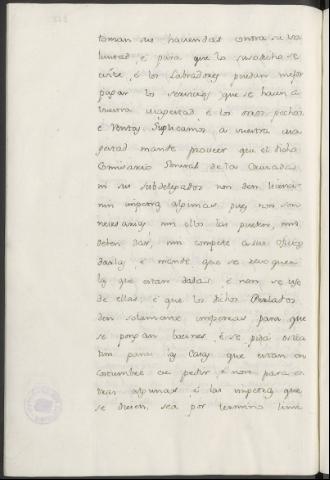 toman sus haciendas contra su vo
luntad, é para que lo susodicho se
evite, é los Labradores puedan mejor
pagar los servicios que se hacen a
vuestra magestad, é los otros pechos
é Rentas Suplicamos a vuestra ma
gestad mande proveer que el dicho
Comisario General de la Cruzada
ni sus subdelegados non den licencias
nin impetras algunas, pues non son
necesarias nin ellos las pueden, nin
deben dar, nin compete a sus oficios
darlas, é mande que se revoquen
las que estan dadas, é non se use
de ellas, é que los dichos Perlados
den solamente impetras para que
se pongan bacines, é se pida ostia
tim para las Casas que estan en
costumbre de pedir, é non para o
tras algunas, é las impetras que
se dieren, sea por termino limi